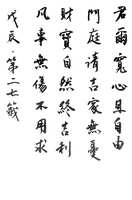 君爾寬心且自由
門庭清吉家無憂
財寶自然終吉利
凡事無傷不用求
戊辰·第二七籤